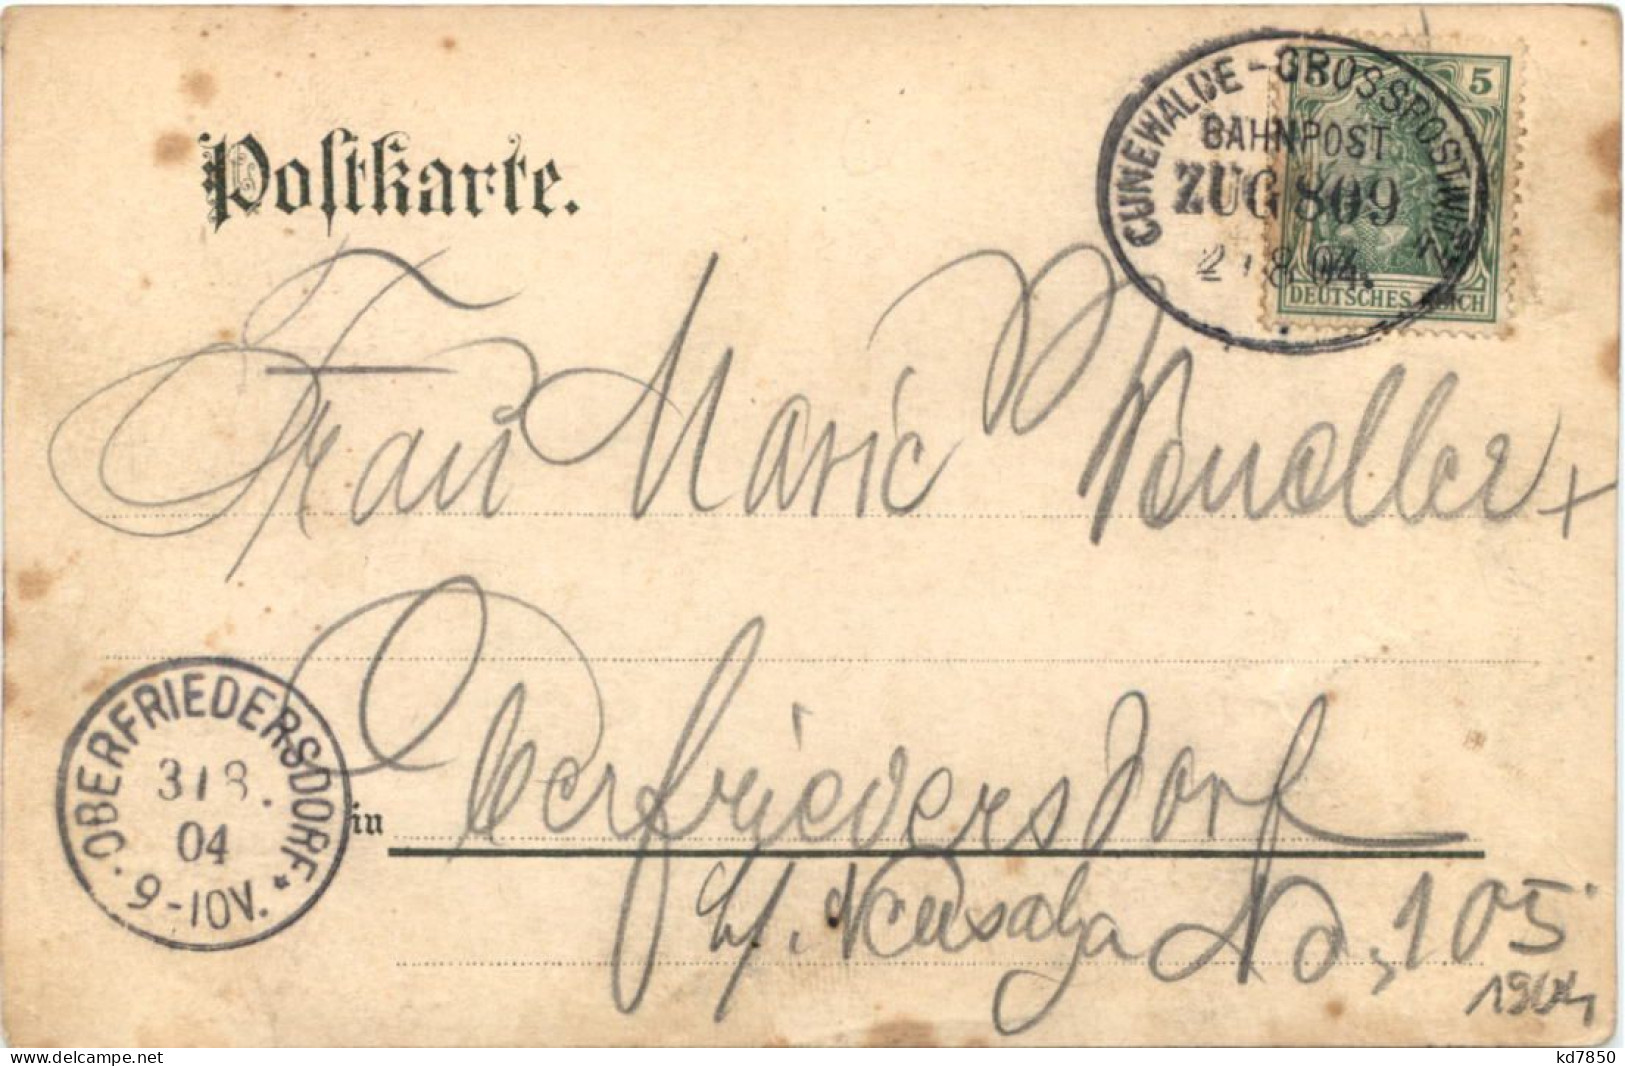 Postkarte.
CUNEWALDE - GROSSPOSTWITZ
BAHNPOST
ZUG 809
8.04.
5
DEUTSCHES REICH
Frau Marie
in Oberfriedersdorf
b/. Neusalza No. 105
1904
OBERFRIEDERSDORF
31 8.
04
9-10V.
kd7850